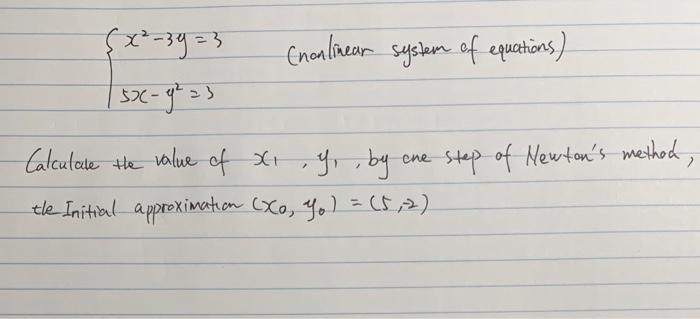 x² - 3y = 3
(nonlinear system of equations)
5x - y² = 3
Calculate the value of x₁, y₁, by one step of Newton's method,
the Initial approximation (x₀, y₀) = (5,-2)